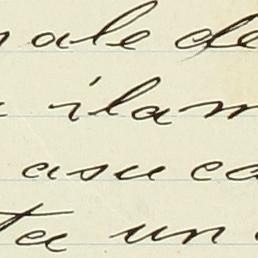 ale de
ilam
asu ca
ta un